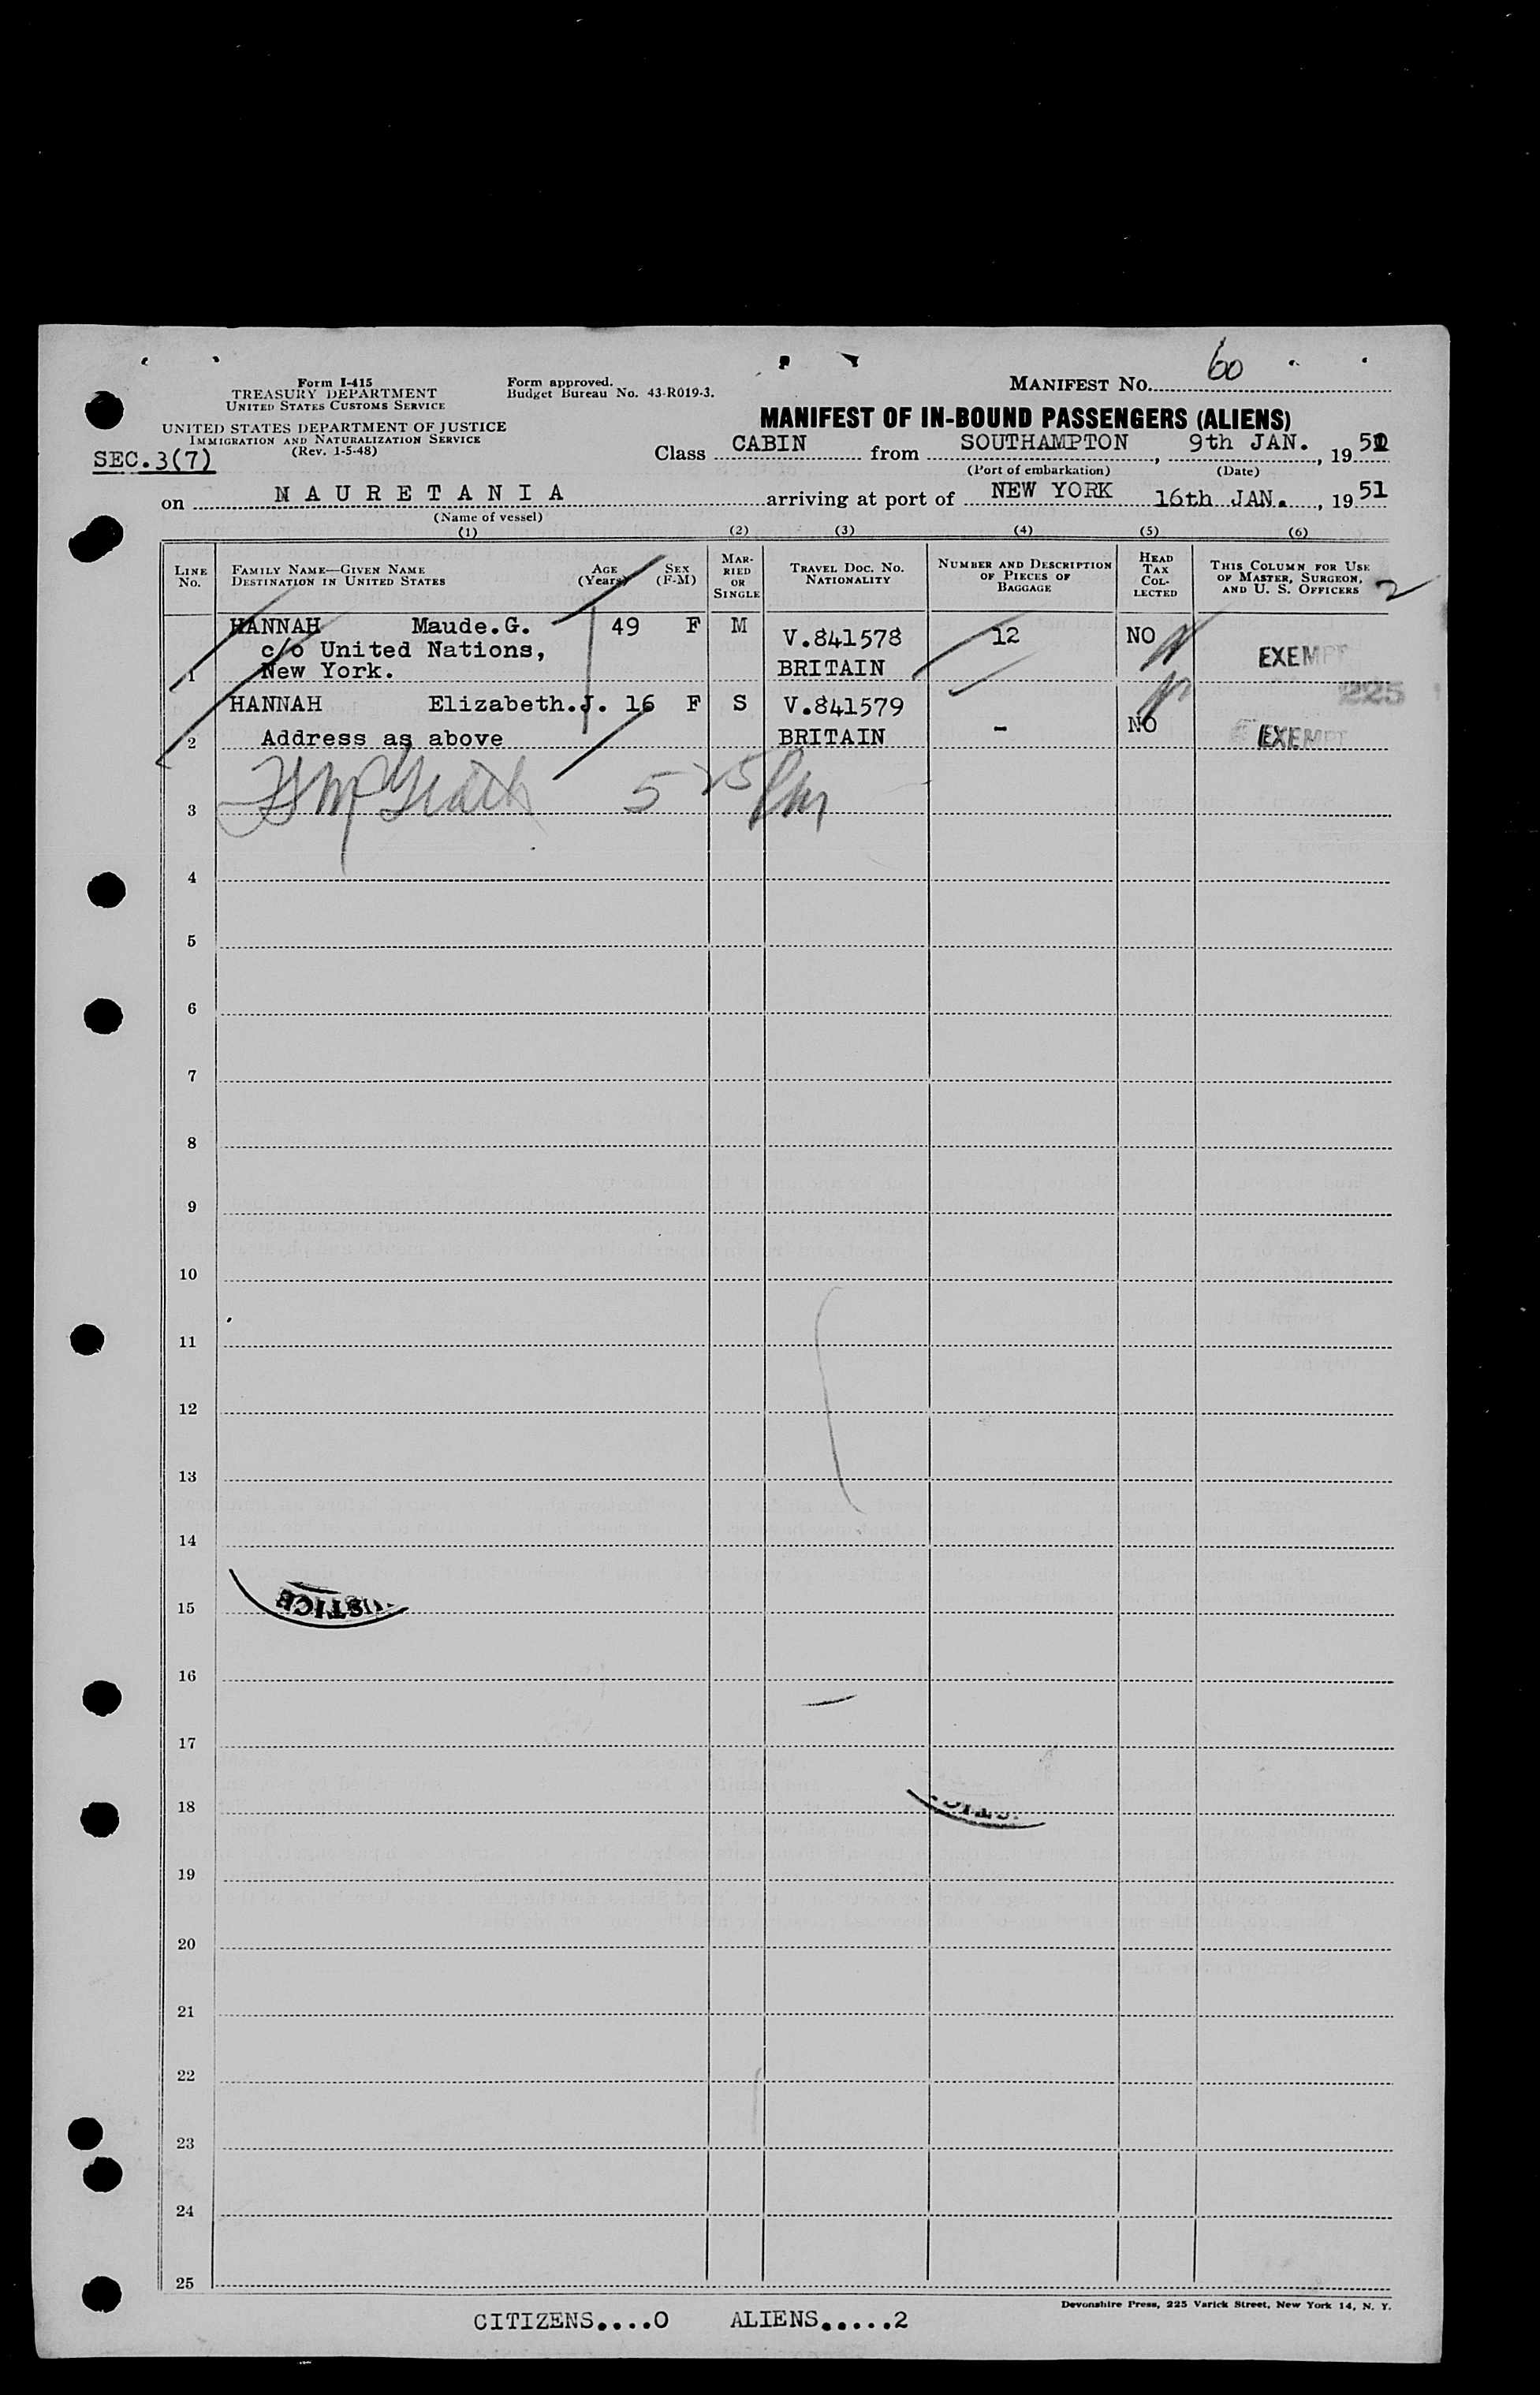 60
Form I-415
TREASURY DEPARTMENT
UNITED STATES CUSTOMS SERVICE
Form approved.
Budget Bureau No. 43-R019-3.
MANIFEST NO.
UNITED STATES DEPARTMENT OF JUSTICE
IMMIGRATION AND NATURALIZATION SERVICE
(Rev. 1-5-48)
SEC.3(7)
MANIFEST OF IN-BOUND PASSENGERS (ALIENS)
Class CABIN from SOUTHAMPTON, 9th JAN., 1951
(Port of embarkation) (Date)
on MAURETANIA arriving at port of NEW YORK 16th JAN., 1951
(Name of vessel)
(1) (2) (3) (4) (5) (6)
LINE NO.
FAMILY NAME—GIVEN NAME
DESTINATION IN UNITED STATES
AGE (Years)
SEX (F-M)
MARRIED OR SINGLE
TRAVEL DOC. NO. NATIONALITY
NUMBER AND DESCRIPTION OF PIECES OF BAGGAGE
HEAD TAX COLLECTED
THIS COLUMN FOR USE OF MASTER, SURGEON, AND U. S. OFFICERS
2
HANNAH Maude.G. 49 F M V.841578 12 NO EXEMPT
c/o United Nations,
1 New York. BRITAIN
225
HANNAH Elizabeth.J. 16 F S V.841579 - NO EXEMPT
2 Address as above BRITAIN
525 Pm
3
4
5
6
7
8
9
10
11
12
13
14
15
JUSTICE
16
17
18
19
20
21
22
23
24
25
Devonshire Press, 225 Varick Street, New York 14, N. Y.
CITIZENS....0 ALIENS.....2